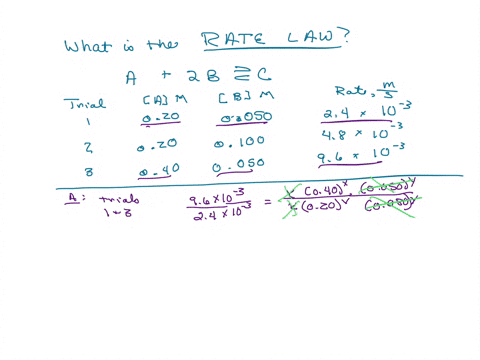 What is the RATE LAW?
A + 2B ⇌ C
Trial [A] M [B] M Rate, M/s
1 0.20 0.050 2.4 × 10⁻³
2 0.20 0.100 4.8 × 10⁻³
3 0.40 0.050 9.6 × 10⁻³
A: trials 1+3 9.6×10⁻³ / 2.4×10⁻³ = k (0.40)ˣ (0.050)ʸ / k (0.20)ˣ (0.050)ʸ